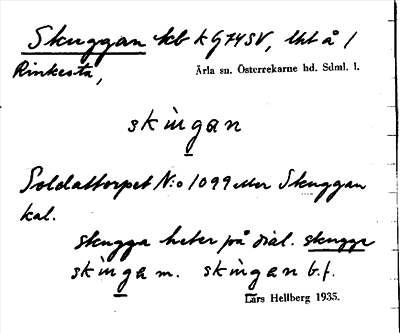 Skuggan kb k G74SV, lht å 1
Rinkesta,
Ärla sn. Österrekarne hd. Sdml. l.
skùgan
Soldattorpet N:o 1099 eller Skuggan
kal.
skugga heter på dial. skugge
skùga m. skùgan b.f.
Lars Hellberg 1935.